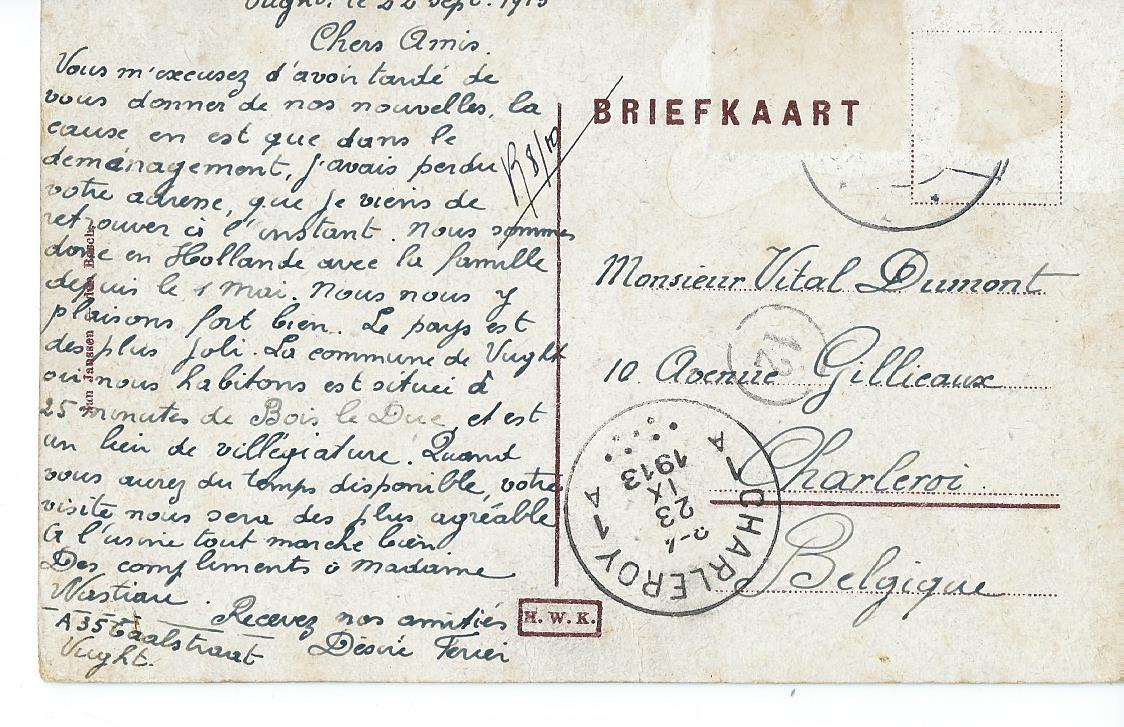 Vught. le 22 sept. 1913
Chers Amis.
Vous m'excusez d'avoir tardé de
vous donner de nos nouvelles, la
cause en est que dans le
deménagement, j'avais perdu
votre adresse, que je viens de
retrouver à l'instant. Nous sommes
donc en Hollande avec la famille
depuis le 1 Mai. Nous nous y
plaisons fort bien. Le pays est
des plus joli. La commune de Vught
où nous habitons est située à
25 minutes de Bois le Duc, et est
un lieu de villégiature. Quand
vous aurez du temps disponible, votre
visite nous sera des plus agréable
A l'usine tout marche bien
Des compliments à Madame
Recevez nos amitiés
Désiré
A 35 Taalstraat
Vught.
R 8/10
Janssen
BRIEFKAART
Monsieur Vital Dumont
10 Avenue Gillieaux
Charleroi
Belgique
12
CHARLEROY 1
A A
23
IX
1913
H. W. K.